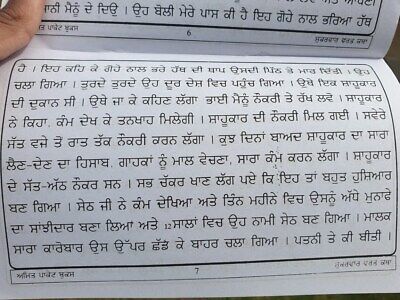 ਨਾਨੀ ਮੈਨੂੰ ਦੇ ਦਿਉ । ਉਹ ਬੋਲੀ ਮੇਰੇ ਪਾਸ ਕੀ ਹੈ ਇਹ ਗੋਹੇ ਨਾਲ ਭਰਿਆ ਹੱਥ
ਅਜਿਤ ਪਾਕੇਟ ਬੁਕਸ 6 ਸ਼ੁਕਰਵਾਰ ਵਰਤ ਕਥਾ
ਹੈ । ਇਹ ਕਹਿ ਕੇ ਗੋਹੇ ਨਾਲ ਭਰੇ ਹੱਥ ਦੀ ਥਾਪ ਉਸਦੀ ਪਿੱਠ ਤੇ ਮਾਰ ਦਿੱਤੀ । ਉਹ
ਚਲਾ ਗਿਆ । ਤੁਰਦੇ ਤੁਰਦੇ ਉਹ ਦੂਰ ਦੇਸ ਵਿਚ ਪਹੁੰਚ ਗਿਆ । ਉਥੇ ਇਕ ਸ਼ਾਹੂਕਾਰ
ਦੀ ਦੁਕਾਨ ਸੀ । ਉਥੇ ਜਾ ਕੇ ਕਹਿਣ ਲੱਗਾ ਭਾਈ ਮੈਨੂੰ ਨੌਕਰੀ ਤੇ ਰੱਖ ਲਵੋ । ਸ਼ਾਹੂਕਾਰ
ਨੇ ਕਿਹਾ, ਕੰਮ ਦੇਖ ਕੇ ਤਨਖਾਹ ਮਿਲੇਗੀ । ਸ਼ਾਹੂਕਾਰ ਦੀ ਨੌਕਰੀ ਮਿਲ ਗਈ । ਸਵੇਰੇ
ਸੱਤ ਵਜੇ ਤੋ ਰਾਤ ਤੱਕ ਨੌਕਰੀ ਕਰਨ ਲੱਗਾ । ਕੁਝ ਦਿਨਾਂ ਬਾਅਦ ਸ਼ਾਹੂਕਾਰ ਦਾ ਸਾਰਾ
ਲੈਣ-ਦੇਣ ਦਾ ਹਿਸਾਬ, ਗਾਹਕਾਂ ਨੂੰ ਮਾਲ ਵੇਚਣਾ, ਸਾਰਾ ਕੰਮ ਕਰਨ ਲੱਗਾ । ਸ਼ਾਹੂਕਾਰ
ਦੇ ਸੱਤ-ਅੱਠ ਨੌਕਰ ਸਨ । ਸਭ ਚੱਕਰ ਖਾਣ ਲੱਗ ਪਏ ਕਿ ਇਹ ਤਾਂ ਬਹੁਤ ਹੁਸ਼ਿਆਰ
ਬਣ ਗਿਆ । ਸੇਠ ਜੀ ਨੇ ਕੰਮ ਦੇਖਿਆ ਅਤੇ ਤਿੰਨ ਮਹੀਨੇ ਵਿਚ ਉਸਨੂੰ ਅੱਧੇ ਮੁਨਾਫੇ
ਦਾ ਸਾਂਝੀਦਾਰ ਬਣਾ ਲਿਆ ਅਤੇ 12 ਸਾਲਾਂ ਵਿਚ ਉਹ ਨਾਮੀ ਸੇਠ ਬਣ ਗਿਆ । ਮਾਲਕ
ਸਾਰਾ ਕਾਰੋਬਾਰ ਉਸ ਉੱਪਰ ਛੱਡ ਕੇ ਬਾਹਰ ਚਲਾ ਗਿਆ । ਪਤਨੀ ਤੇ ਕੀ ਬੀਤੀ ।
ਅਜਿਤ ਪਾਕੇਟ ਬੁਕਸ 7 ਸ਼ੁਕਰਵਾਰ ਵਰਤ ਕਥਾ